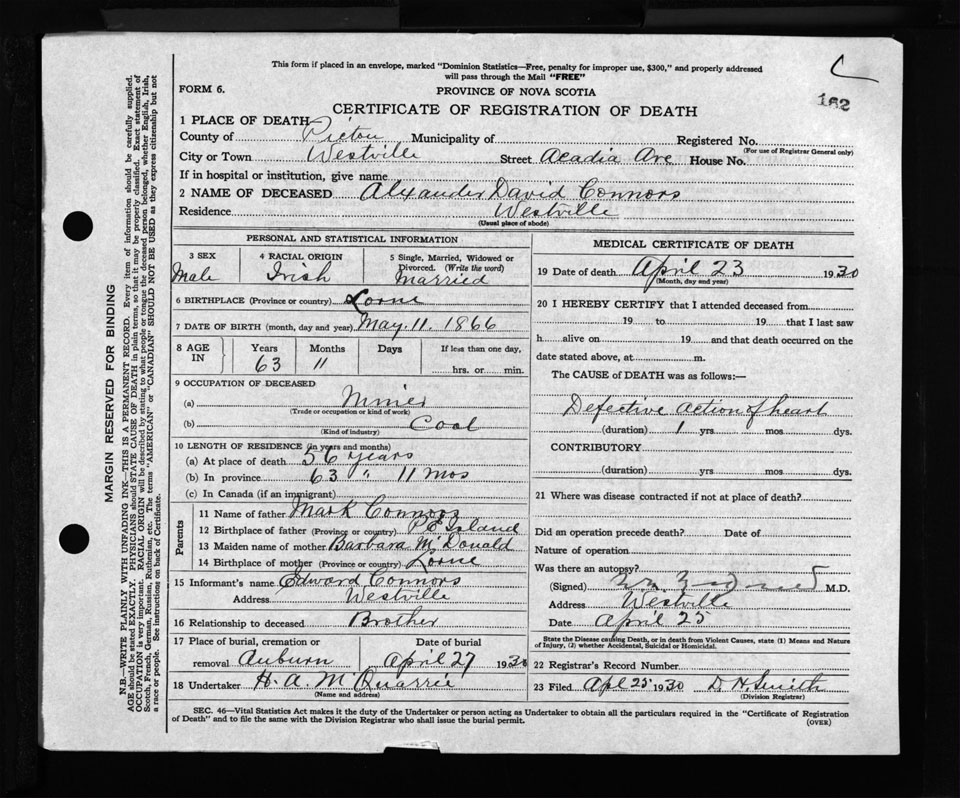 This form if placed in an envelope, marked "Dominion Statistics—Free, penalty for improper use, $300," and properly addressed
will pass through the Mail "FREE"
162
FORM 6.
PROVINCE OF NOVA SCOTIA
CERTIFICATE OF REGISTRATION OF DEATH
1 PLACE OF DEATH
County of Pictou Municipality of Registered No.
(For use of Registrar General only)
City or Town Westville Street Acadia Ave House No.
If in hospital or institution, give name
2 NAME OF DECEASED Alxander David Connors
Residence Westville
(Usual place of abode)
PERSONAL AND STATISTICAL INFORMATION
3 SEX Male
4 RACIAL ORIGIN Irish
5 Single, Married, Widowed or Divorced. (Write the word) Married
6 BIRTHPLACE (Province or country) Lorne
7 DATE OF BIRTH (month, day and year) May. 11. 1866
8 AGE IN Years Months Days If less than one day,
63 11 hrs. or min.
9 OCCUPATION OF DECEASED
(a) Miner
(Trade or occupation or kind of work)
(b) Coal
(Kind of industry)
10 LENGTH OF RESIDENCE (in years and months)
(a) At place of death 56 years
(b) In province 63 " 11 mos
(c) In Canada (if an immigrant)
Parents
11 Name of father Mark Connors
12 Birthplace of father (Province or country) P. E Island
13 Maiden name of mother Barbara McDonald
14 Birthplace of mother (Province or country) Lorne
15 Informant's name Edward Connors
Address Westville
16 Relationship to deceased Brother
17 Place of burial, cremation or Date of burial
removal Auburn April 27 1930
18 Undertaker H. A. McQuarrie
(Name and address)
MEDICAL CERTIFICATE OF DEATH
19 Date of death April 23 1930
(Month, day and year)
20 I HEREBY CERTIFY that I attended deceased from
19 to 19 that I last saw
h alive on 19 and that death occurred on the
date stated above, at m.
The CAUSE of DEATH was as follows:—
Defective action of heart
(duration) 1 yrs mos dys.
CONTRIBUTORY
(duration) yrs. mos. dys.
21 Where was disease contracted if not at place of death?
Did an operation precede death? Date of
Nature of operation
Was there an autopsy?
(Signed) M.D.
Address Westville
Date April 25
State the Disease causing Death, or in death from Violent Causes, state (1) Means and Nature
of Injury, (2) whether Accidental, Suicidal or Homicidal.
22 Registrar's Record Number
23 Filed Apl 25 1930 D H Smith
(Division Registrar)
SEC. 46—Vital Statistics Act makes it the duty of the Undertaker or person acting as Undertaker to obtain all the particulars required in the "Certificate of Registration
of Death" and to file the same with the Division Registrar who shall issue the burial permit.
(OVER)
MARGIN RESERVED FOR BINDING
N.B.—WRITE PLAINLY WITH UNFADING INK—THIS IS A PERMANENT RECORD. Every item of information should be carefully supplied.
AGE should be stated EXACTLY. PHYSICIANS should STATE CAUSE OF DEATH in plain terms, so that it may be properly classified. Exact statement of
OCCUPATION is very important. RACIAL ORIGIN will be described by stating to what people or tongue the deceased person belonged, whether English, Irish,
Scotch, French, German, Russian, Ruthenian, etc. The terms "AMERICAN" or "CANADIAN" SHOULD NOT BE USED as they express citizenship but not
a race or people. See instructions on back of Certificate.